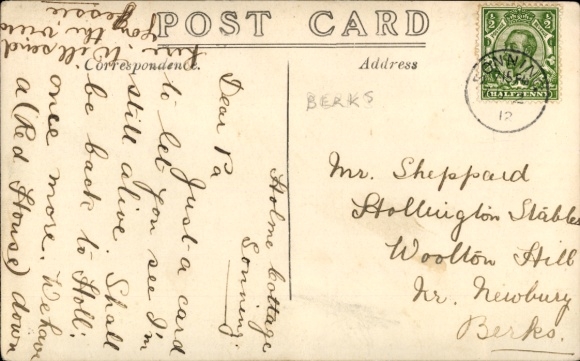 POST CARD
Correspondence.
Address
HALFPENNY
SONNING
12
BERKS
Mr. Sheppard
Hollington Stables
Woolton Hill
Nr. Newbury
Berks.
Holme Cottage
Sonning.
Dear Pa
Just a card
to let you see I'm
still alive Shall
be back to Holl:
once more. We have
a (Red House) down
here. Will send
long
Jessie